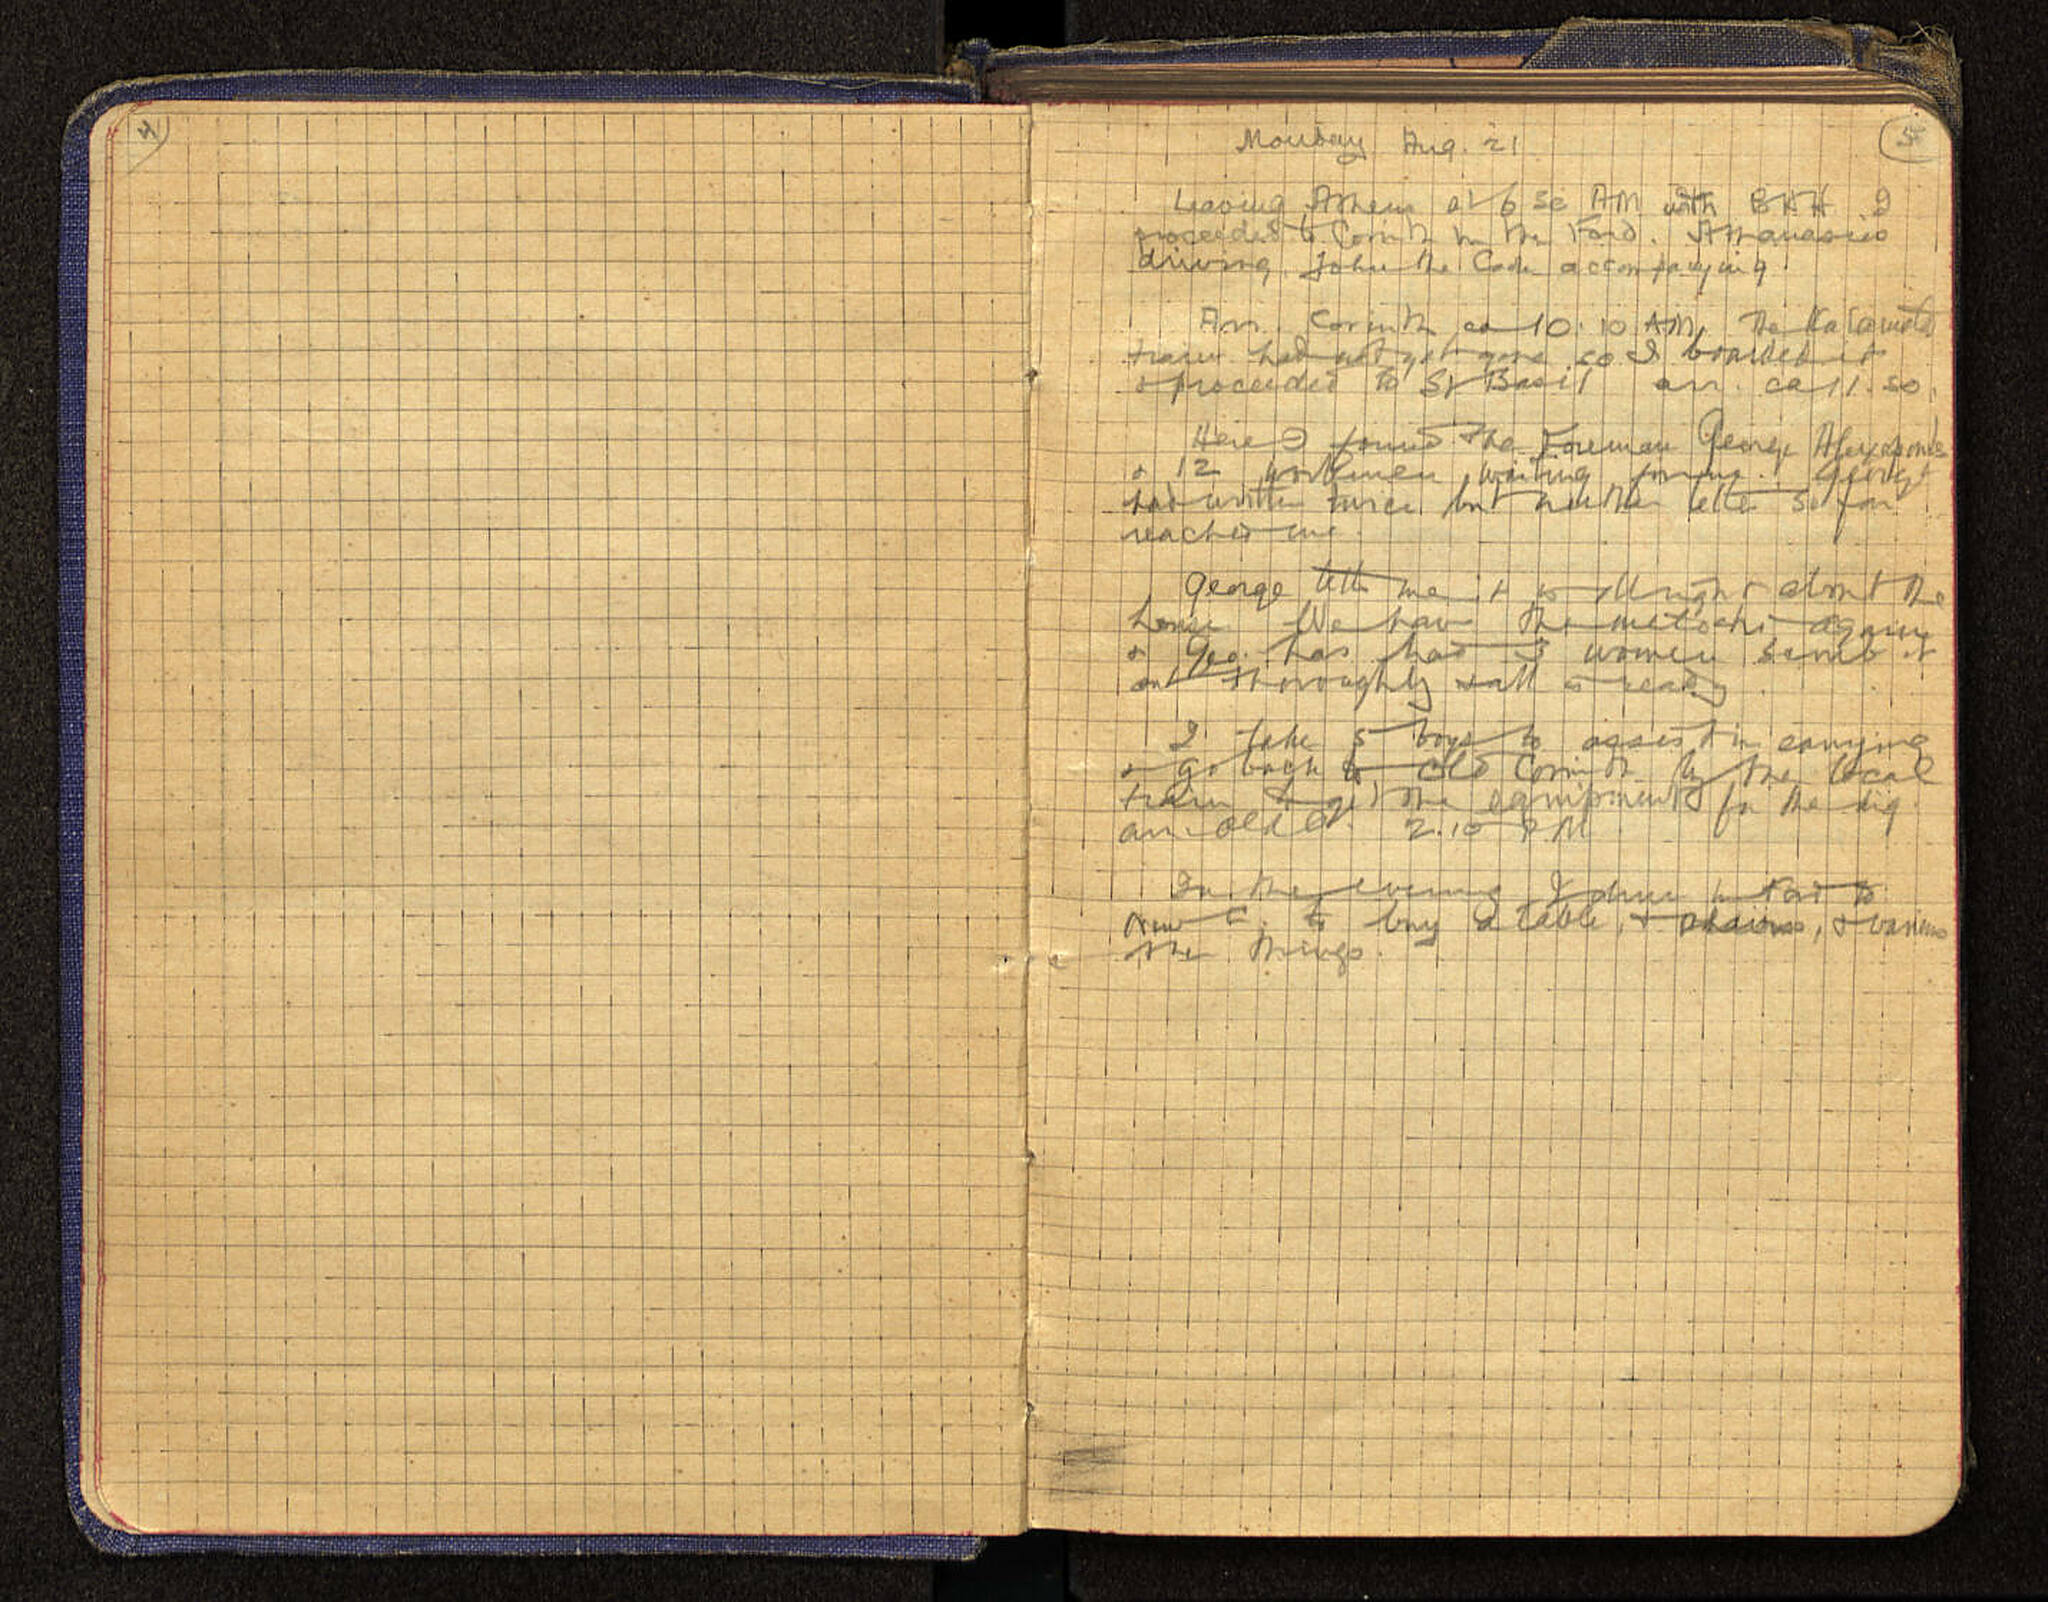 4
5
Monday Aug. 21
Leaving Athens at 6 50 AM with BHH I
proceeded to Corinth in the Ford. Athanasios
driving. John the Cook accompanying.
Arr. Corinth ca 10.10 AM. The Kalamata
train had not yet gone so I boarded it
& proceeded to St Basil arr. ca 11.50.
Here I found the Foreman George
& 12 workmen waiting for me. George
had written twice but neither letter so far
reached me.
George tells me it is all right about the
house. We have the metochi again
& Geo. has had 3 women scrub it
out thoroughly & all is ready.
I take 5 boys to assist in carrying
& go back to Old Corinth by the local
train to get the equipment for the dig.
arr. Old C. 2.10 PM
In the evening I drive in Ford to
New C. to buy a table, & chairs, & various
other things.